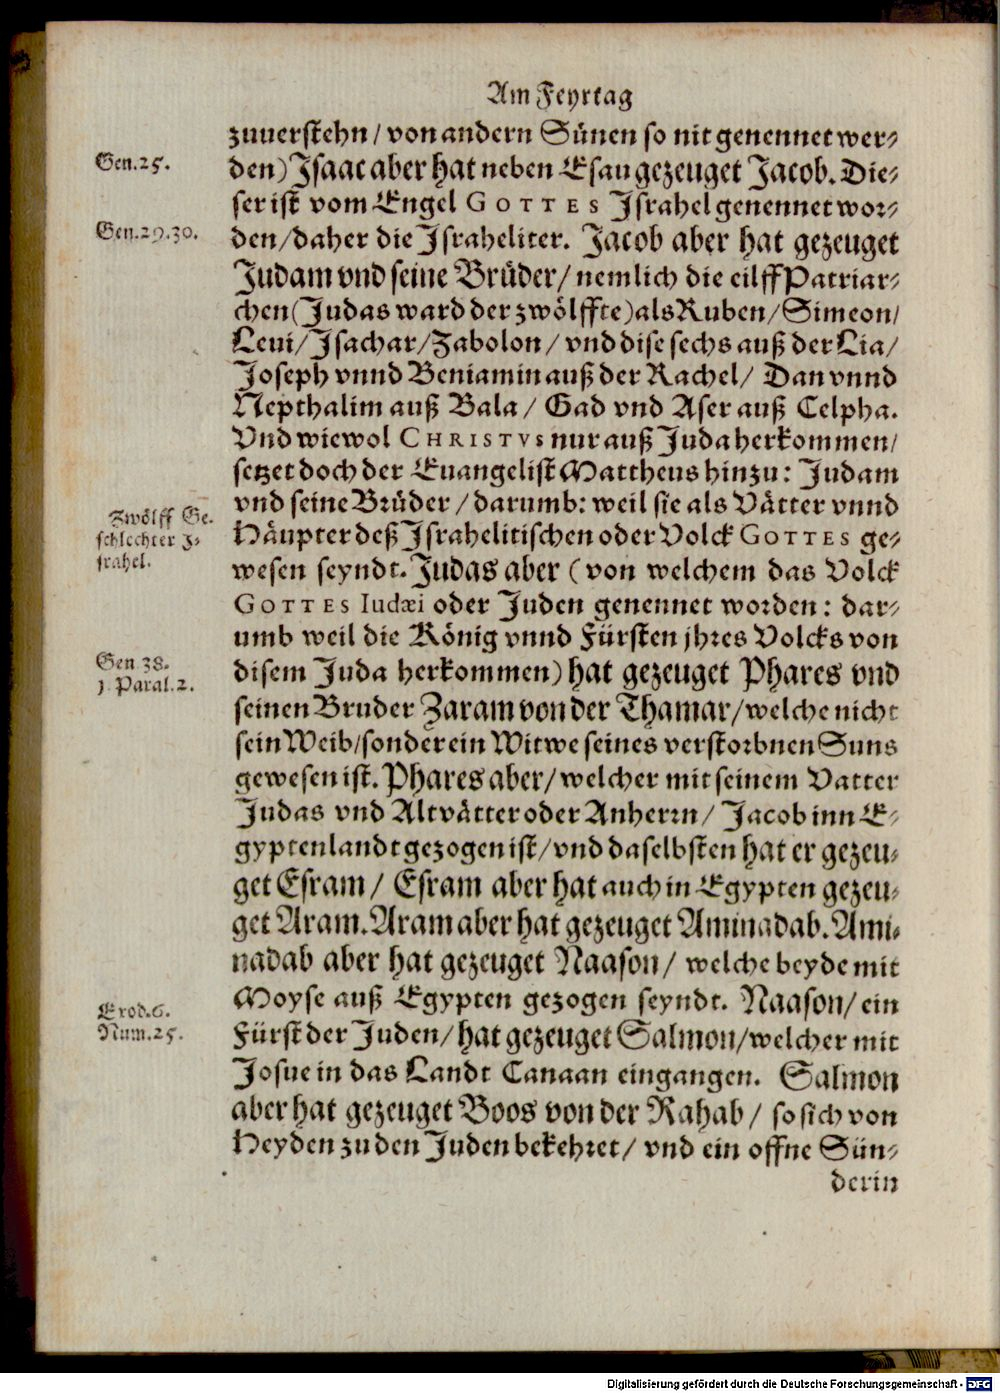 Am Feyrtag
zuuerstehn/ von andern Sünen so nit genennet wer-
Gen. 25.
den) Isaac aber hat neben Esau gezeuget Jacob. Die-
ser ist vom Engel GOTTES Israhel genennet wor-
Gen. 29. 30.
den/ daher die Israheliter. Jacob aber hat gezeuget
Judam vnd seine Brüder/ nemlich die eilff Patriar-
chen (Judas ward der zwölffte) als Ruben/ Simeon/
Leui/ Isachar/ Zabolon/ vnd dise sechs auß der Lia/
Joseph vnnd Beniamin auß der Rachel/ Dan vnnd
Nepthalim auß Bala/ Gad vnd Aser auß Celpha.
Vnd wiewol CHRISTVS nur auß Juda herkommen/
setzet doch der Euangelist Mattheus hinzu: Judam
vnd seine Brüder/ darumb: weil sie als Vätter vnnd
Zwölff Ge-
schlechter J-
srahel.
Häupter deß Israhelitischen oder Volck GOTTES ge-
wesen seyndt. Judas aber (von welchem das Volck
GOTTES Iudæi oder Juden genennet worden: dar-
umb weil die König vnnd Fürsten jhres Volcks von
Gen 38.
1. Paral. 2.
disem Juda herkommen) hat gezeuget Phares vnd
seinen Bruder Zaram von der Thamar/ welche nicht
sein Weib/ sonder ein Witwe seines verstorbnen Suns
gewesen ist. Phares aber/ welcher mit seinem Vatter
Judas vnd Altvätter oder Anherrn/ Jacob inn E-
gyptenlandt gezogen ist/ vnd daselbsten hat er gezeu-
get Esram/ Esram aber hat auch in Egypten gezeu-
get Aram. Aram aber hat gezeuget Aminadab. Ami-
nadab aber hat gezeuget Naason/ welche beyde mit
Moyse auß Egypten gezogen seyndt. Naason/ ein
Exod. 6.
Num. 25.
Fürst der Juden/ hat gezeuget Salmon/ welcher mit
Josue in das Landt Canaan eingangen. Salmon
aber hat gezeuget Boos von der Rahab/ so sich von
Heyden zu den Juden bekehret/ vnd ein offne Sün-
derin
Digitalisierung gefördert durch die Deutsche Forschungsgemeinschaft - DFG